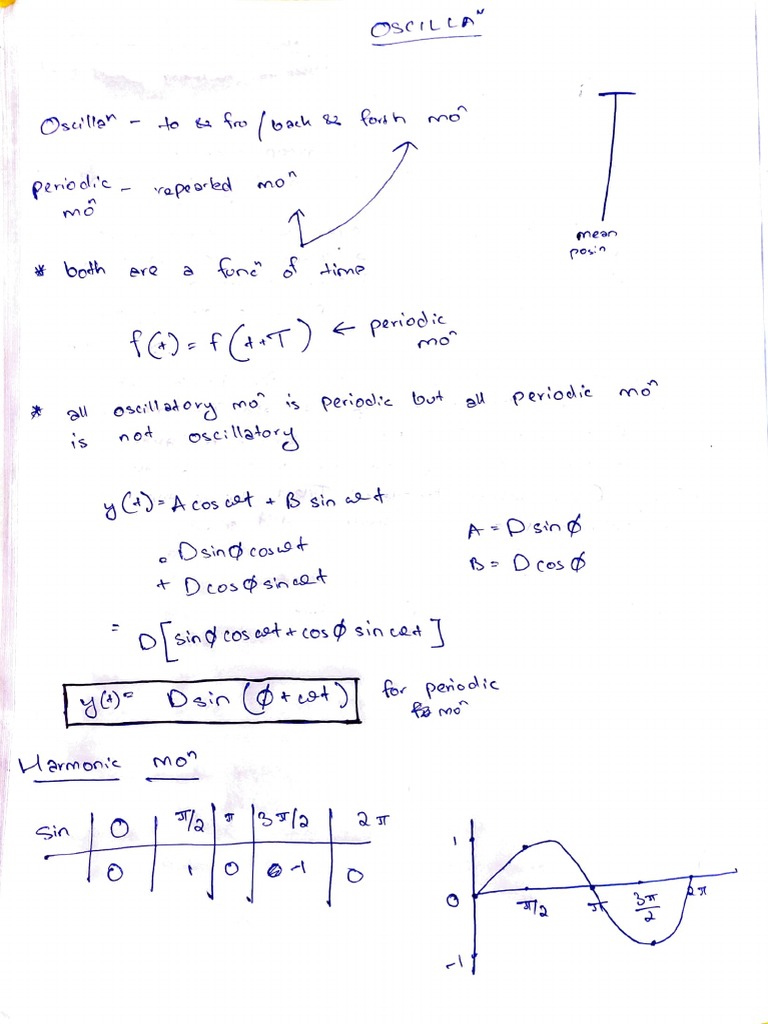 OSCILLAⁿ
Oscillaⁿ - to & fro / back & forth moⁿ
periodic - repearted moⁿ
moⁿ
mean
posiⁿ
* both are a funcⁿ of time
f(t) = f(t+T) ← periodic
moⁿ
* all oscillatory moⁿ is periodic but all periodic moⁿ
is not oscillatory
y(t) = A cos ωt + B sin ωt
A = D sin ϕ
= D sin ϕ cos ωt
B = D cos ϕ
+ D cos ϕ sin ωt
= D [sin ϕ cos ωt + cos ϕ sin ωt]
y(t) = D sin (ϕ + ωt) for periodic
moⁿ
Harmonic moⁿ
sin 0 π/2 π 3π/2 2π
0 1 0 -1 0
1
0 π/2 π 3π/2 2π
-1